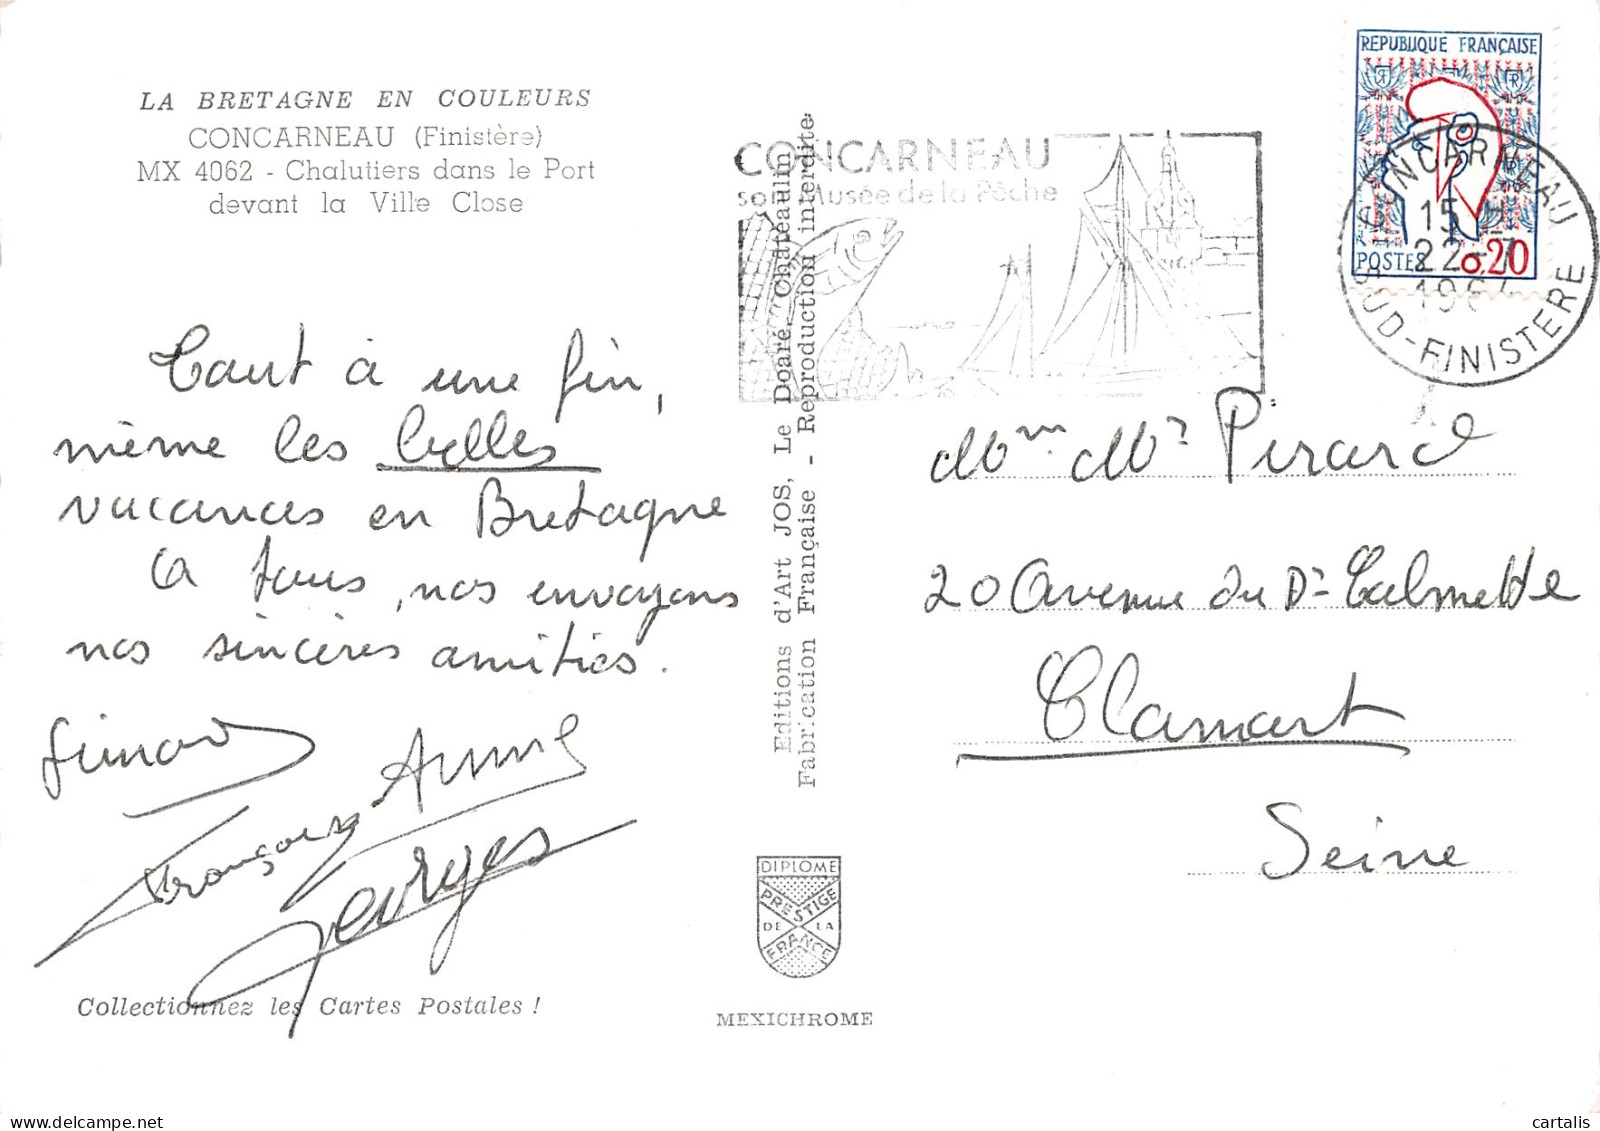 LA BRETAGNE EN COULEURS
CONCARNEAU (Finistère)
MX 4062 - Chalutiers dans le Port
devant la Ville Close
Tout à une fin,
même les belles
vacances en Bretagne
A tous, nos envoyons
nos sincères amitiés.
Anne
Françoise
Georges
Collectionnez les Cartes Postales !
Editions d'Art JOS, Le Doaré, Châteaulin
Fabrication Française - Reproduction interdite
DIPLOME
PRESTIGE
DE LA
FRANCE
MEXICHROME
CONCARNEAU
son Musée de la Pêche
REPUBLIQUE FRANÇAISE
POSTES 0,20
CONCARNEAU
15 H
22-7
SUD-FINISTERE
Mme Mr Pirard
20 Avenue du Dr Calmette
Clamart
Seine
cartalis